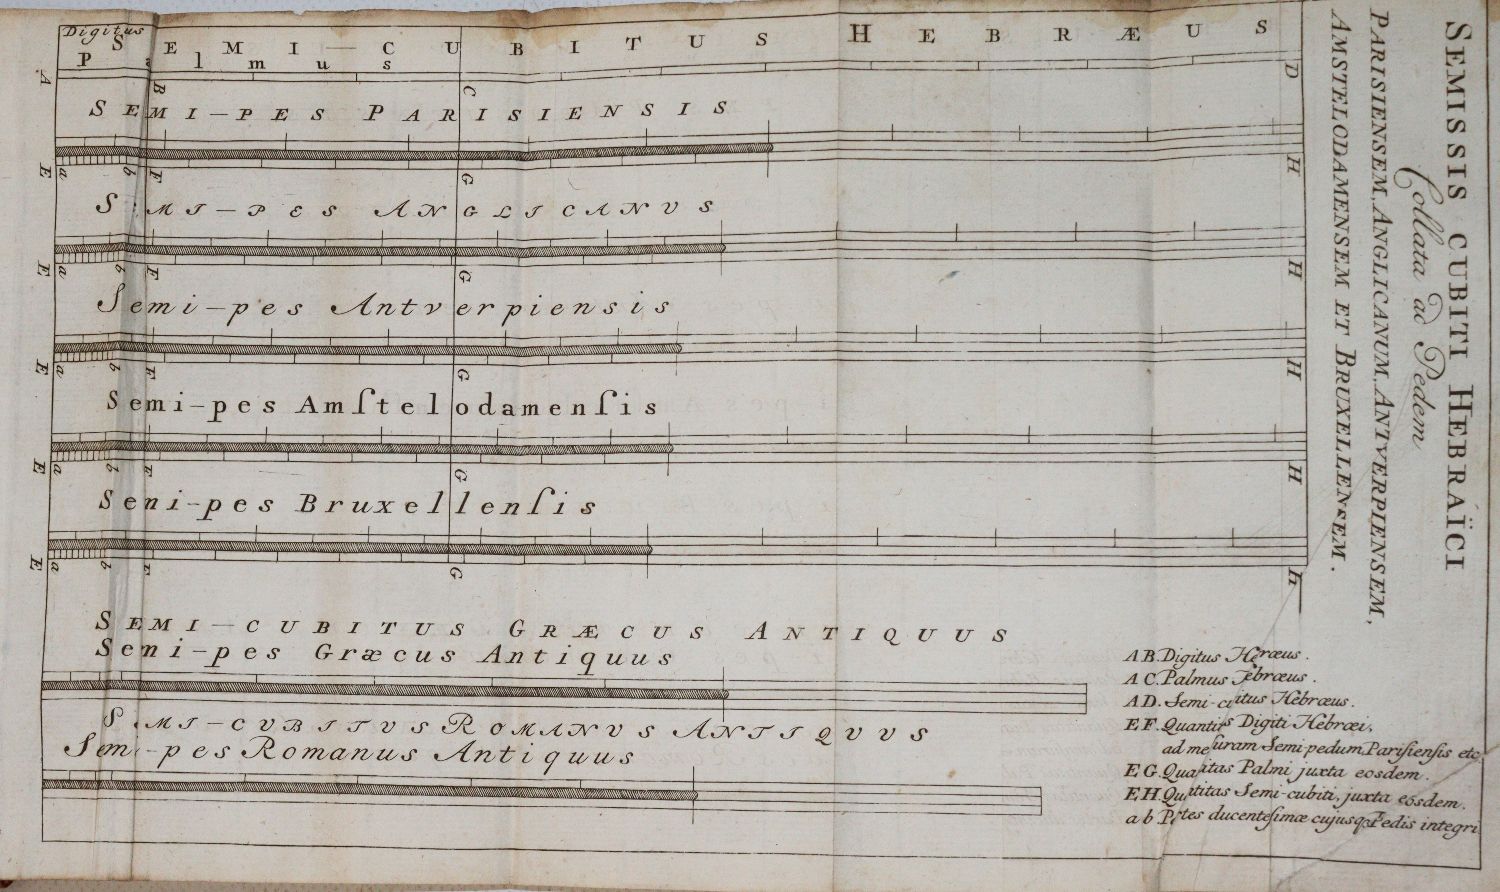 SEMISSIS CUBITI HEBRAÏCI
Collata ad Pedem
PARISIENSEM, ANGLICANUM, ANTVERPIENSEM,
AMSTELODAMENSEM ET BRUXELLENSEM.
Digitus
SEMI-CUBITUS HEBRÆUS
Palmus
A B C D
SEMI-PES PARISIENSIS
E a b F G H
SEMI-PES ANGLICANVS
E a b F G H
Semi-pes Antverpiensis
E a b F G H
Semi-pes Amſtelodamenſis
E a b F G H
Semi-pes Bruxellenſis
E a b F G H
SEMI-CUBITUS GRÆCUS ANTIQUUS
Semi-pes Græcus Antiquus
SEMI-CVBITVS ROMANVS ANTIQVVS
Semi-pes Romanus Antiquus
AB. Digitus Hebræus.
AC. Palmus Hebræus.
AD. Semi-cubitus Hebræus.
EF. Quantitas Digiti Hebræi,
ad meſuram Semi-pedum Pariſienſis etc.
EG. Quantitas Palmi juxta eosdem.
EH. Quantitas Semi-cubiti, juxta eosdem.
ab Partes ducenteſimæ cujusq. Pedis integri